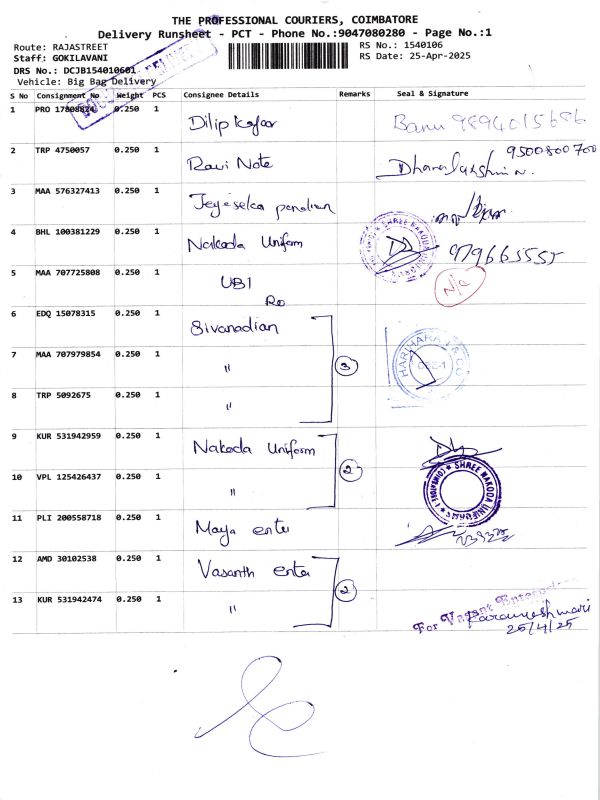 THE PROFESSIONAL COURIERS, COIMBATORE
Delivery Runsheet - PCT - Phone No.:9047080280 - Page No.:1
Route: RAJASTREET RS No.: 1540106
Staff: GOKILAVANI RS Date: 25-Apr-2025
DRS No.: DCJB154010601
Vehicle: Big Bag Delivery
S No Consignment No Weight PCS Consignee Details Remarks Seal & Signature
1 PRO 17808824 0.250 1 Dilip Banu 9894015686
2 TRP 4750057 0.250 1 Ravi Note 9500800700
3 MAA 576327413 0.250 1
4 BHL 100381229 0.250 1 Nakoda Uniform
5 MAA 707725808 0.250 1 UBI N/C
Ro
6 EDQ 15078315 0.250 1 Sivanadian
7 MAA 707979854 0.250 1 " 3 HARIHARA & CO CBE-1
8 TRP 5092675 0.250 1 "
9 KUR 531942959 0.250 1 Nakoda Uniform
2 SHREE NAKODA UNIFORMS
10 VPL 125426437 0.250 1 "
11 PLI 200558718 0.250 1 Maya enter
12 AMD 30102538 0.250 1 Vasanth enter
2
13 KUR 531942474 0.250 1 " For Vasant Enterprises
Parameshwari
25/4/25